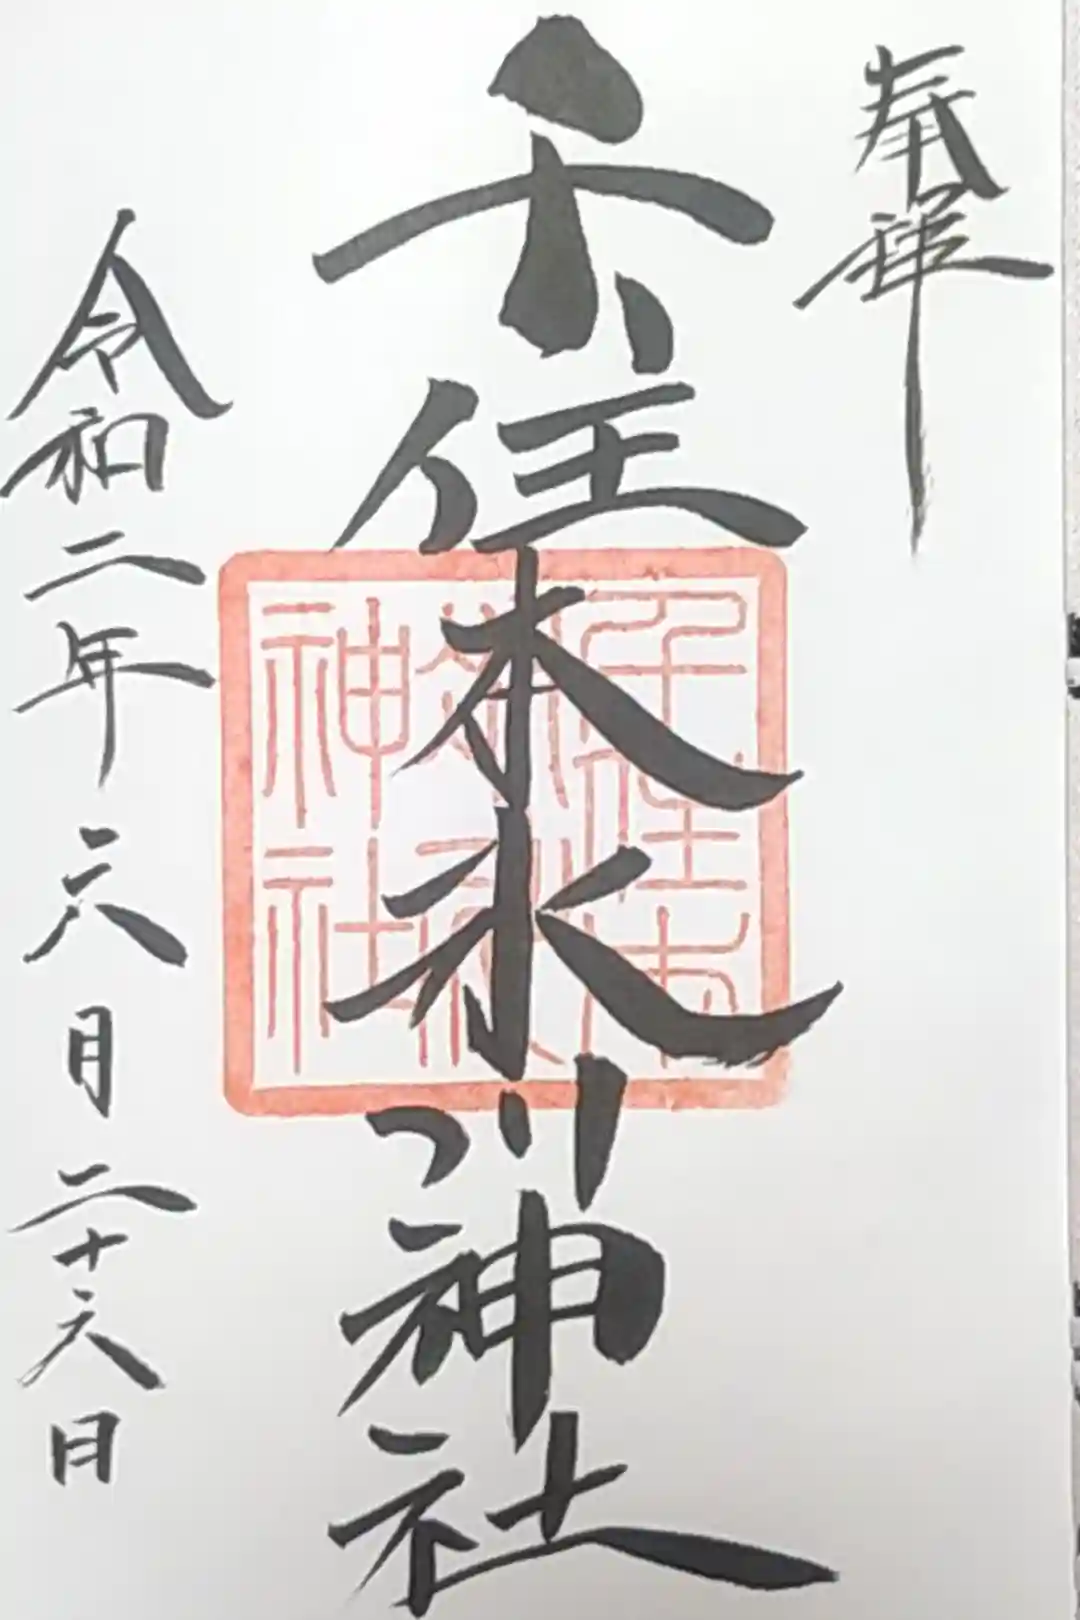 奉拝
千住本氷川神社
千住本
神社
令和二年六月二十六日